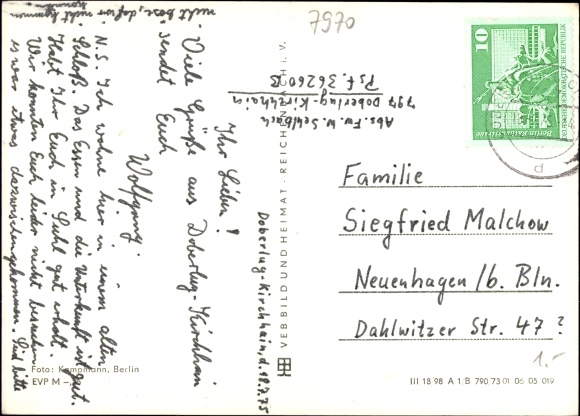 7970
Doberlug-Kirchhain, d. 18.7.75
Ihr Lieben!
Viele Grüße aus Doberlug-Kirchhain
sendet Euch
Wolfgang.
N.S. Ich wohne hier in einem alten
Schloß. Das Essen und die Unterkunft ist gut.
Habt Ihr Euch in Suhl gut erholt.
Wir konnten Euch leider nicht besuchen
es war etwas dazwischengekommen. Seid bitte
nicht böse, daß wir nicht kommen
konnten
Abs. Fw. W. Sehlbach
797 Doberlug-Kirchhain
Psf. 36260 B
VEB BILD UND HEIMAT · REICHENBACH I. V.
10
DEUTSCHE DEMOKRATISCHE REPUBLIK
Familie
Siegfried Malchow
Neuenhagen /b. Bln.
Dahlwitzer Str. 47 ?
1.-
Foto: Kampmann, Berlin
EVP M -
III 18 98 A 1 B 790 73 01 06 05 019